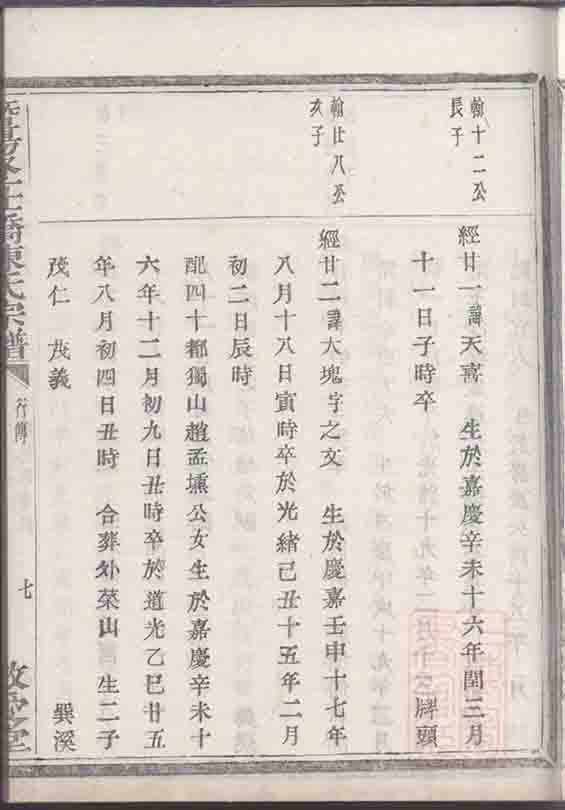 翰十二公
長子
經廿一諱天壽 生於嘉慶辛未十六年閏三月
十一日子時卒
翰廿八公
次子
經廿二諱大塊字之文 生於慶嘉壬申十七年
八月十八日寅時卒於光緒己丑十五年二月
初二日辰時
配四十都獨山趙孟壎公女生於嘉慶辛未十
六年十二月初九日丑時卒於道光乙巳廿五
年八月初四日丑時 合葬外荣山 生二子
茂仁 茂義 巽溪
陳氏宗譜
行傳
七